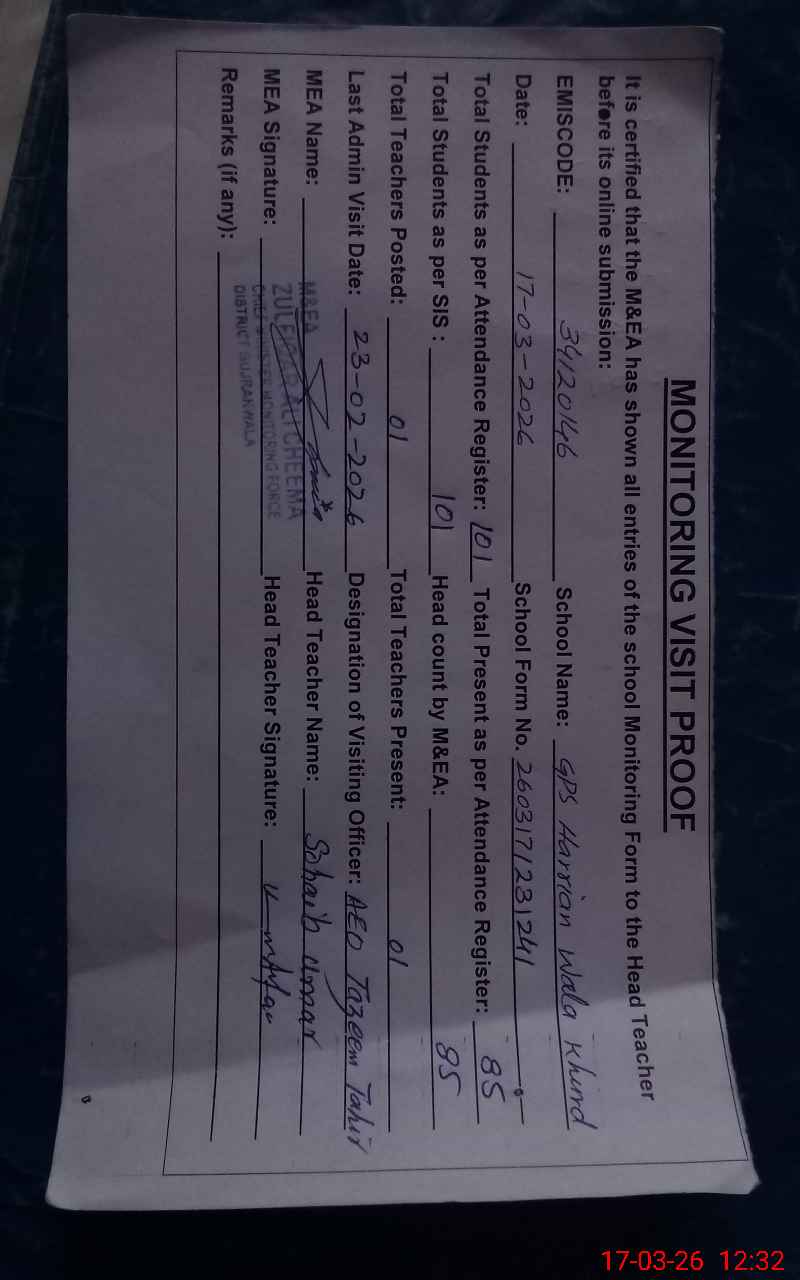 MONITORING VISIT PROOF
It is certified that the M&EA has shown all entries of the school Monitoring Form to the Head Teacher
before its online submission:
EMISCODE: 34120146 School Name: GPS Harrian Wala Khurd
Date: 17-03-2026 School Form No. 2603171231241
Total Students as per Attendance Register: 101 Total Present as per Attendance Register: 85
Total Students as per SIS : 101 Head count by M&EA: 85
Total Teachers Posted: 01 Total Teachers Present: 01
Last Admin Visit Date: 23-02-2026 Designation of Visiting Officer: AEO Tazeem Tahir
MEA Name: Head Teacher Name: Sohaib Umar
MEA Signature: Head Teacher Signature:
Remarks (if any):
M&EA
ZULFIQAR ALI CHEEMA
CHIEF MINISTER MONITORING FORCE
DISTRICT GUJRANWALA
17-03-26 12:32